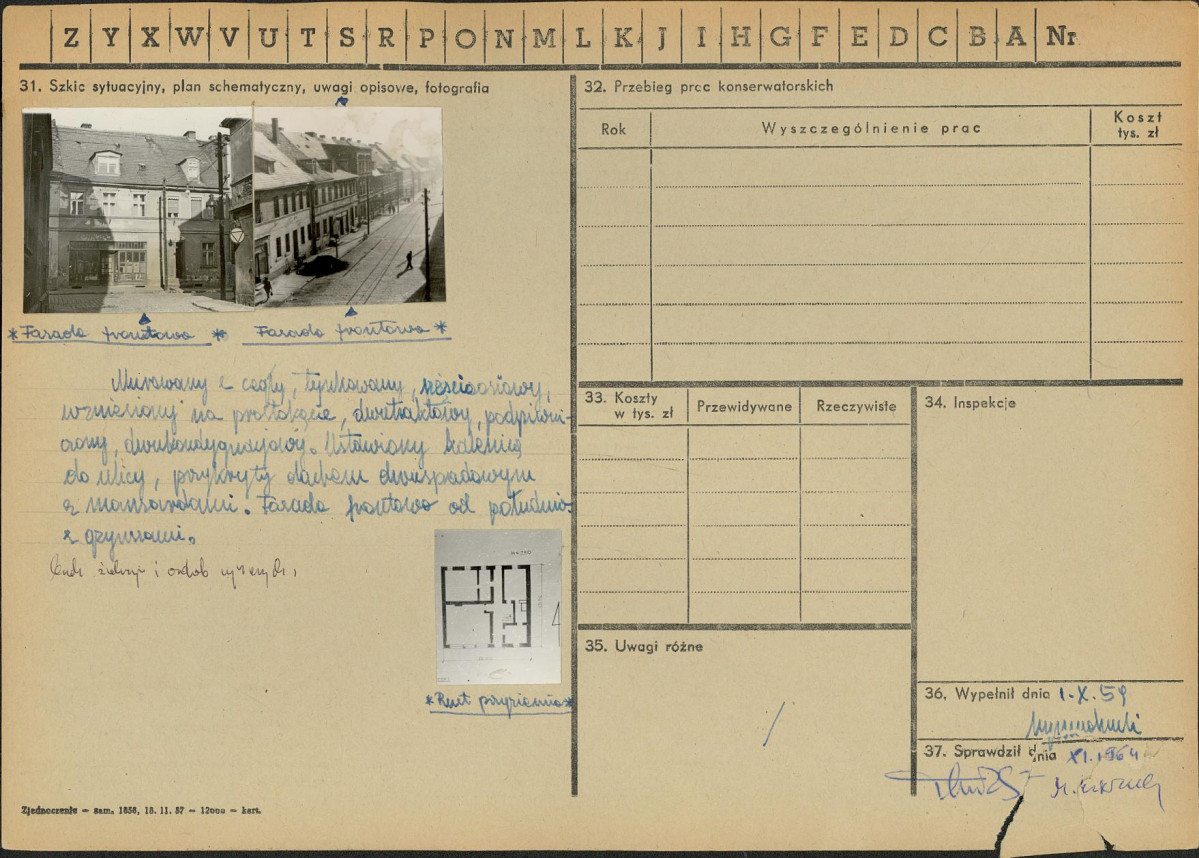 Z Y X W V U T S R P O N M L K J I H G F E D C B A Nr
31. Szkic sytuacyjny, plan schematyczny, uwagi opisowe, fotografia
* Fasada frontowa *
Fasada frontowa *
Murowany z cegły, tynkowany, sześcioosiowy,
wzniesiony na prostokącie, dwutraktowy, podpiwni-
czony, dwukondygnacjowy. Ustawiony kalenicą
do ulicy, przykryty dachem dwuspadowym
z mansardami. Fasada frontowa od południa
z gzymsami.
i ozdób
* Rzut przyziemia *
Zjednoczenie — zam. 1858, 18. 11. 57 — 12000 — kart.
32. Przebieg prac konserwatorskich
Rok
Wyszczególnienie prac
Koszt
tys. zł
33. Koszty
w tys. zł
Przewidywane
Rzeczywiste
34. Inspekcje
35. Uwagi różne
36. Wypełnił dnia 1.X.59
37. Sprawdził dnia XI.1964